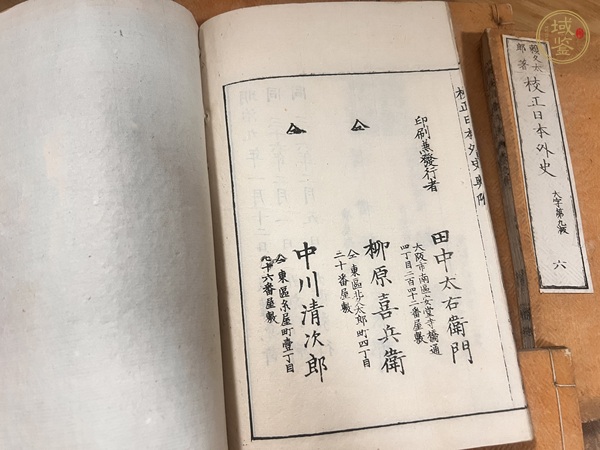 校正日本外史奥附
印刷兼發行者
田中太右衛門
大阪市南區安堂寺橋通
四丁目二百四十二番屋敷
仝
柳原喜兵衛
仝東區北久太郎町四丁目
二十番屋敷
仝
中川清次郎
仝東區糸屋町壹丁目
四十六番屋敷
賴久太
郎著
校正日本外史
大字第九版
六
域鉴